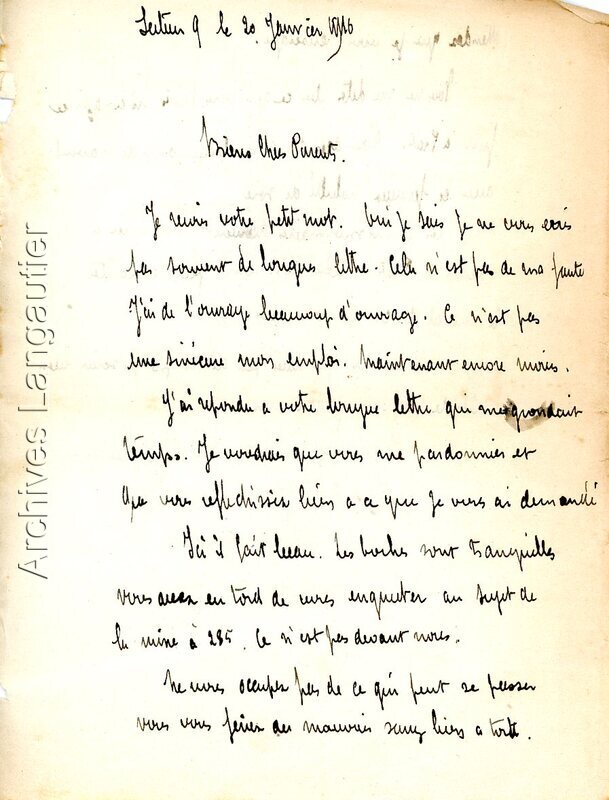 Secteur 9 le 20 Janvier 1916
Biens Chers Parents.
Je reçois votre petit mot. Oui je sais je ne vous ecris
pas souvent de longues lettre. Cela n'est pas de ma faute
J'ai de l'ouvrage beaucoup d'ouvrage. Ce n'est pas
une sinécure mon emploi. Maintenant encore moins.
J'ai repondu a votre longue lettre qui me grondait
temps. Je voudrais que vous me pardonnies et
que vous reflechissiez biens a ce que je vous ai demandé
Ici il fait beau. Les boches sont tranquilles
vous avez eu tord de vous enqueter au sujet de
la mine à 285. Ce n'est pas devant nous.
Ne vous occupez pas de ce qui peut se passer
vous vous feriez du mauvais sang biens a tort.
Archives Langautier